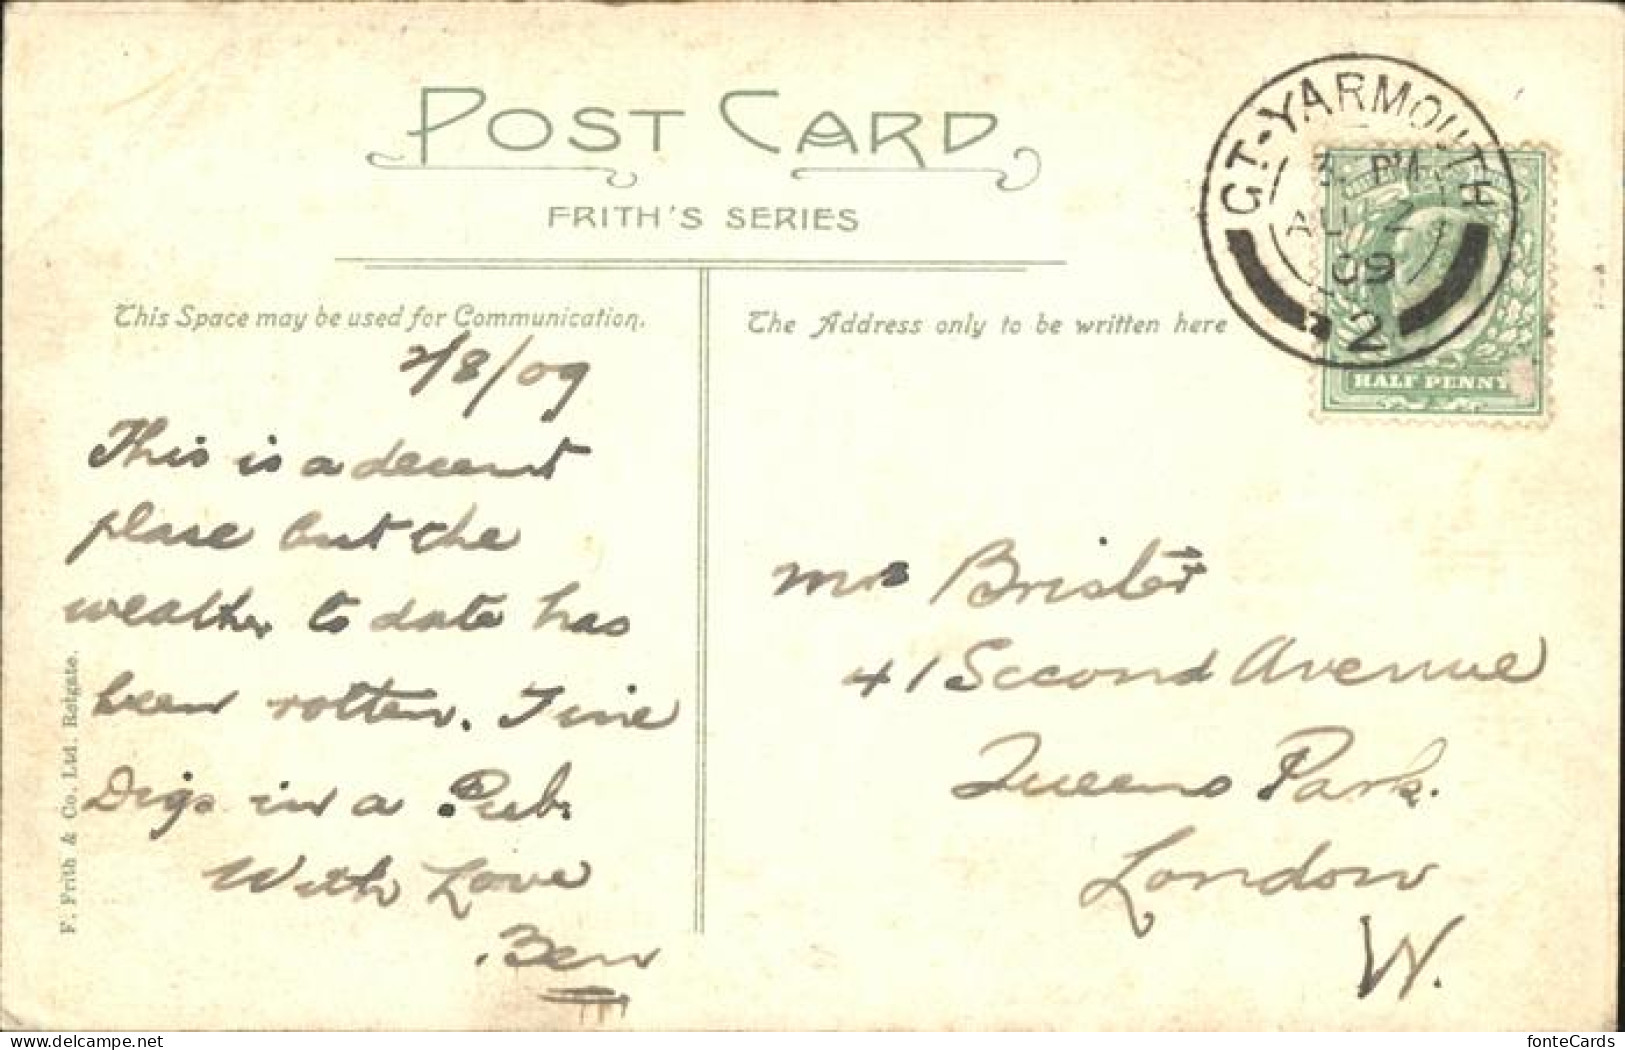 POST CARD
FRITH'S SERIES
This Space may be used for Communication.
2/8/09
This is a decent
plase but the
weather to date has
been rotten. Fine
Digs in a Pub.
With Love
Ben
F. Frith & Co. Ltd. Reigate.
The Address only to be written here
GT. YARMOUTH
3. PM
AU 2
09
2
HALF PENNY
Mrs Brister
41 Second Avenue
Queens Park.
London
W.
delcampe.net
fonteCards